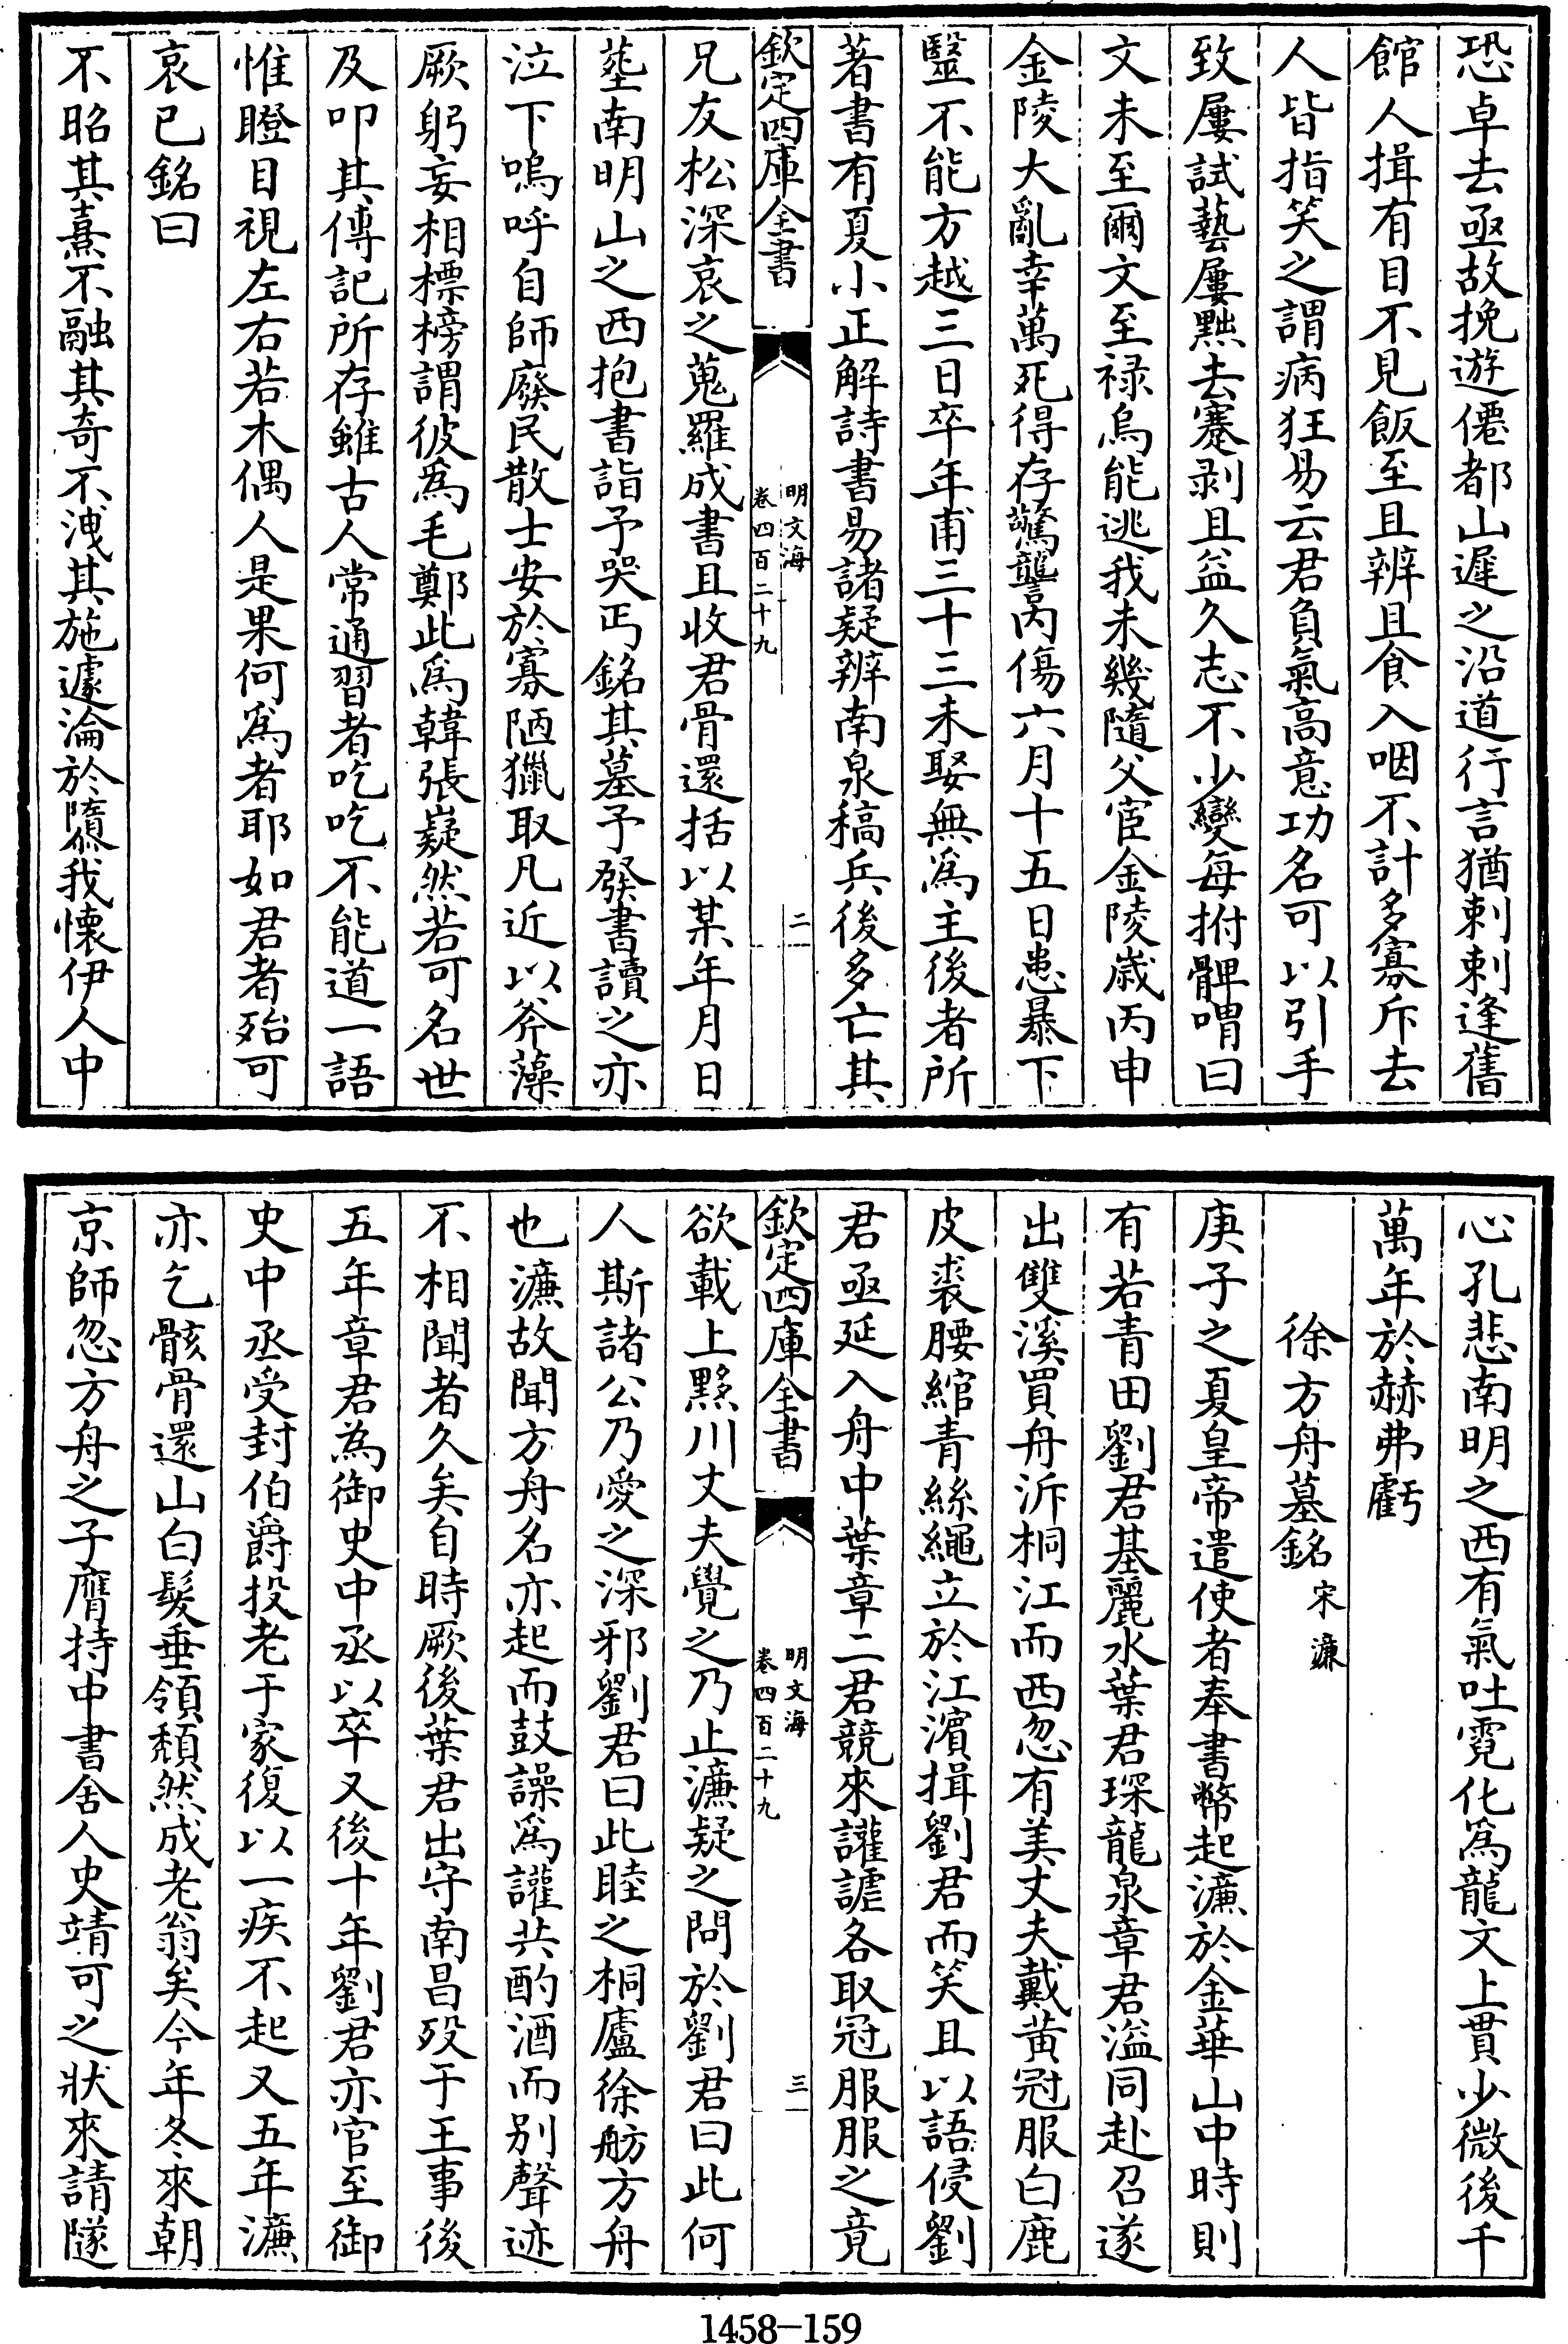 恐卓去亟故挽遊僊都山遲之沿道行言猶剌剌逢舊
館人揖有目不見飯至且辨且食入咽不計多寡斥去
人皆指笑之謂病狂易云君負氣高意功名可以引手
致屢試藝屢黜去蹇剥且益久志不少變每拊髀喟曰
文未至爾文至禄烏能逃我未幾隨父宦金陵歳丙申
金陵大亂幸萬死得存驚讋内傷六月十五日患暴下
毉不能方越三日卒年甫三十三未娶無為主後者所
著書有夏小正解詩書易諸疑辨南泉稿兵後多亡其
欽定四庫全書
明文海
卷四百二十九
二
兄友松深哀之蒐羅成書且收君骨還括以某年月日
塟南明山之西抱書詣予哭丐銘其墓予發書讀之亦
泣下嗚呼自師廢民散士安於寡陋獵取凡近以斧藻
厥躬妄相標榜謂彼為毛鄭此為韓張嶷然若可名世
及叩其傳記所存雖古人常通習者吃吃不能道一語
惟瞪目視左右若木偶人是果何為者耶如君者殆可
哀已銘曰
不昭其熹不融其奇不洩其施遽淪於隳我懐伊人中
心孔悲南明之西有氣吐霓化為龍文上貫少微後千
萬年於赫弗虧
徐方舟墓銘 宋濂
庚子之夏皇帝遣使者奉書幣起濂於金華山中時則
有若青田劉君基麗水葉君琛龍泉章君溢同赴召遂
出雙溪買舟泝桐江而西忽有美丈夫戴黄冠服白鹿
皮裘腰綰青絲繩立於江濵揖劉君而笑且以語侵劉
君亟延入舟中葉章二君競來讙謔各取冠服服之竟
欽定四庫全書
明文海
卷四百二十九
三
欲載上黟川丈夫覺之乃止濂疑之問於劉君曰此何
人斯諸公乃愛之深邪劉君曰此睦之桐廬徐舫方舟
也濂故聞方舟名亦起而鼓譟為讙共酌酒而别聲迹
不相聞者久矣自時厥後葉君出守南昌殁于王事後
五年章君為御史中丞以卒又後十年劉君亦官至御
史中丞受封伯爵投老于家復以一疾不起又五年濂
亦乞骸骨還山白髮垂領頽然成老翁矣今年冬來朝
京師忽方舟之子膺持中書舍人史靖可之狀來請隧
1458-159